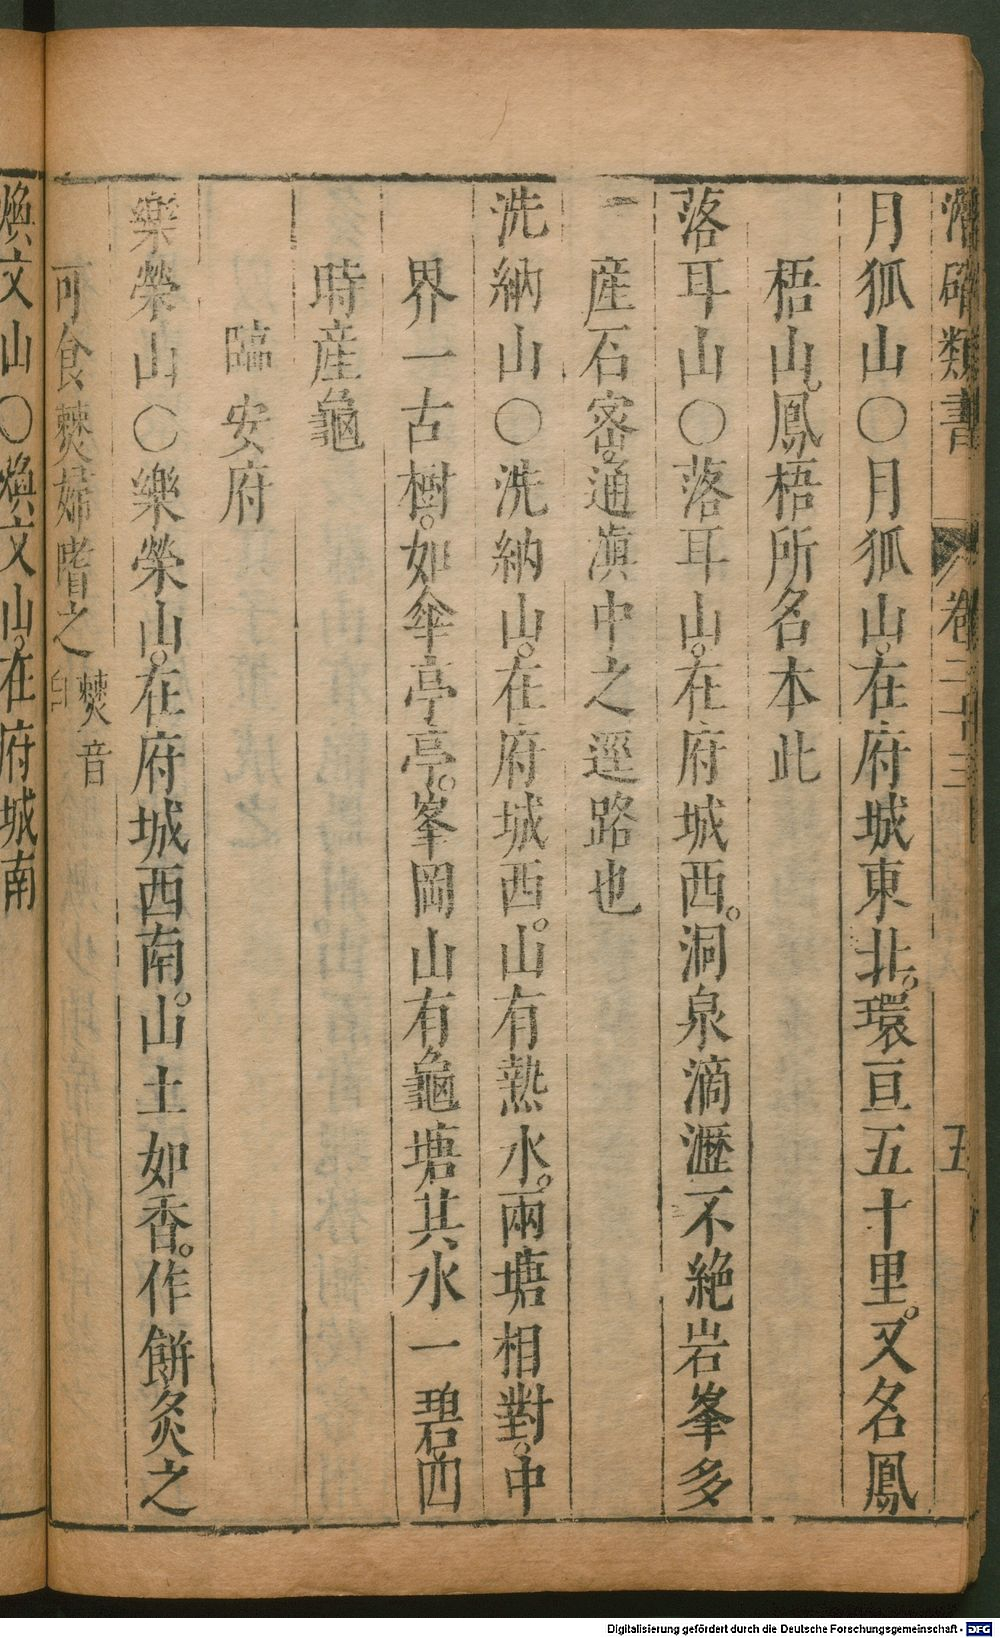 潛確類書 卷二十三 五
月狐山〇月狐山。在府城東北。環亘五十里。又名鳳
梧山。鳳梧所名本此
落耳山〇落耳山。在府城西。洞泉滴瀝不絶岩峯多
產石密。通滇中之逕路也
洗納山〇洗納山。在府城西。山有熱水。兩塘相對。中
界一古樹。如傘亭亭。峯岡山有龜塘其水一碧。四
時產龜
臨安府
樂榮山〇樂榮山。在府城西南。山土如香。作餅炙之
可食僰婦嗜之 僰音
煥文山〇煥文山。在府城南
Digitalisierung gefördert durch die Deutsche Forschungsgemeinschaft - DFG